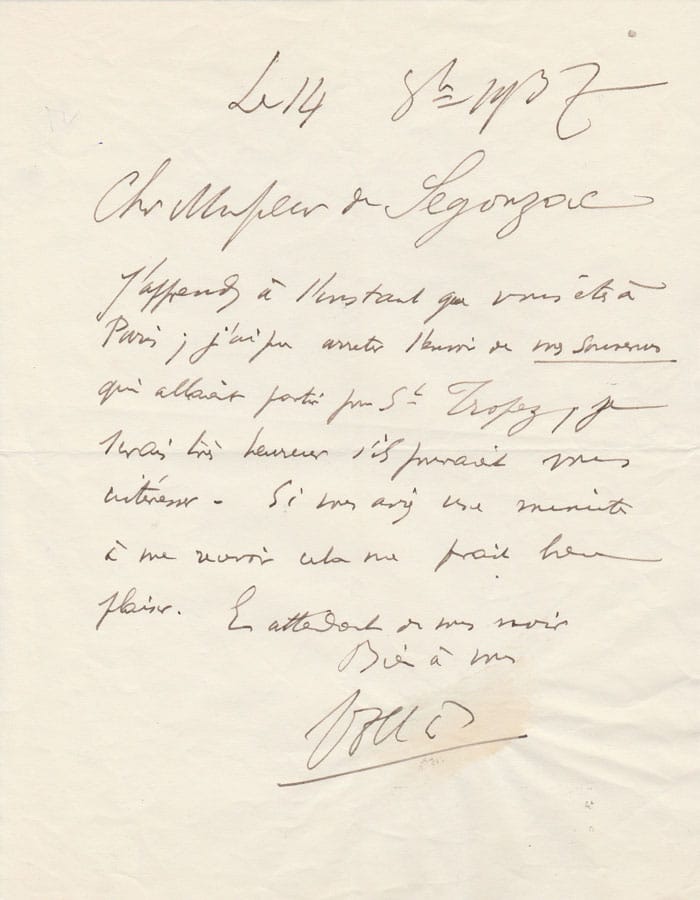 Le 14 8bre 1937
Cher Monsieur de Segonzac
J'apprends à l'instant que vous êtes à
Paris ; j'ai pu arreter l'envoi de mes souvenirs
qui allait partir pour St Tropez, je
serais très heureux s'ils pouvait vous
intéresser - Si vous avez une minute
à me recevoir cela me ferait bien
plaisir. En attendant de vous revoir
Bien à vous